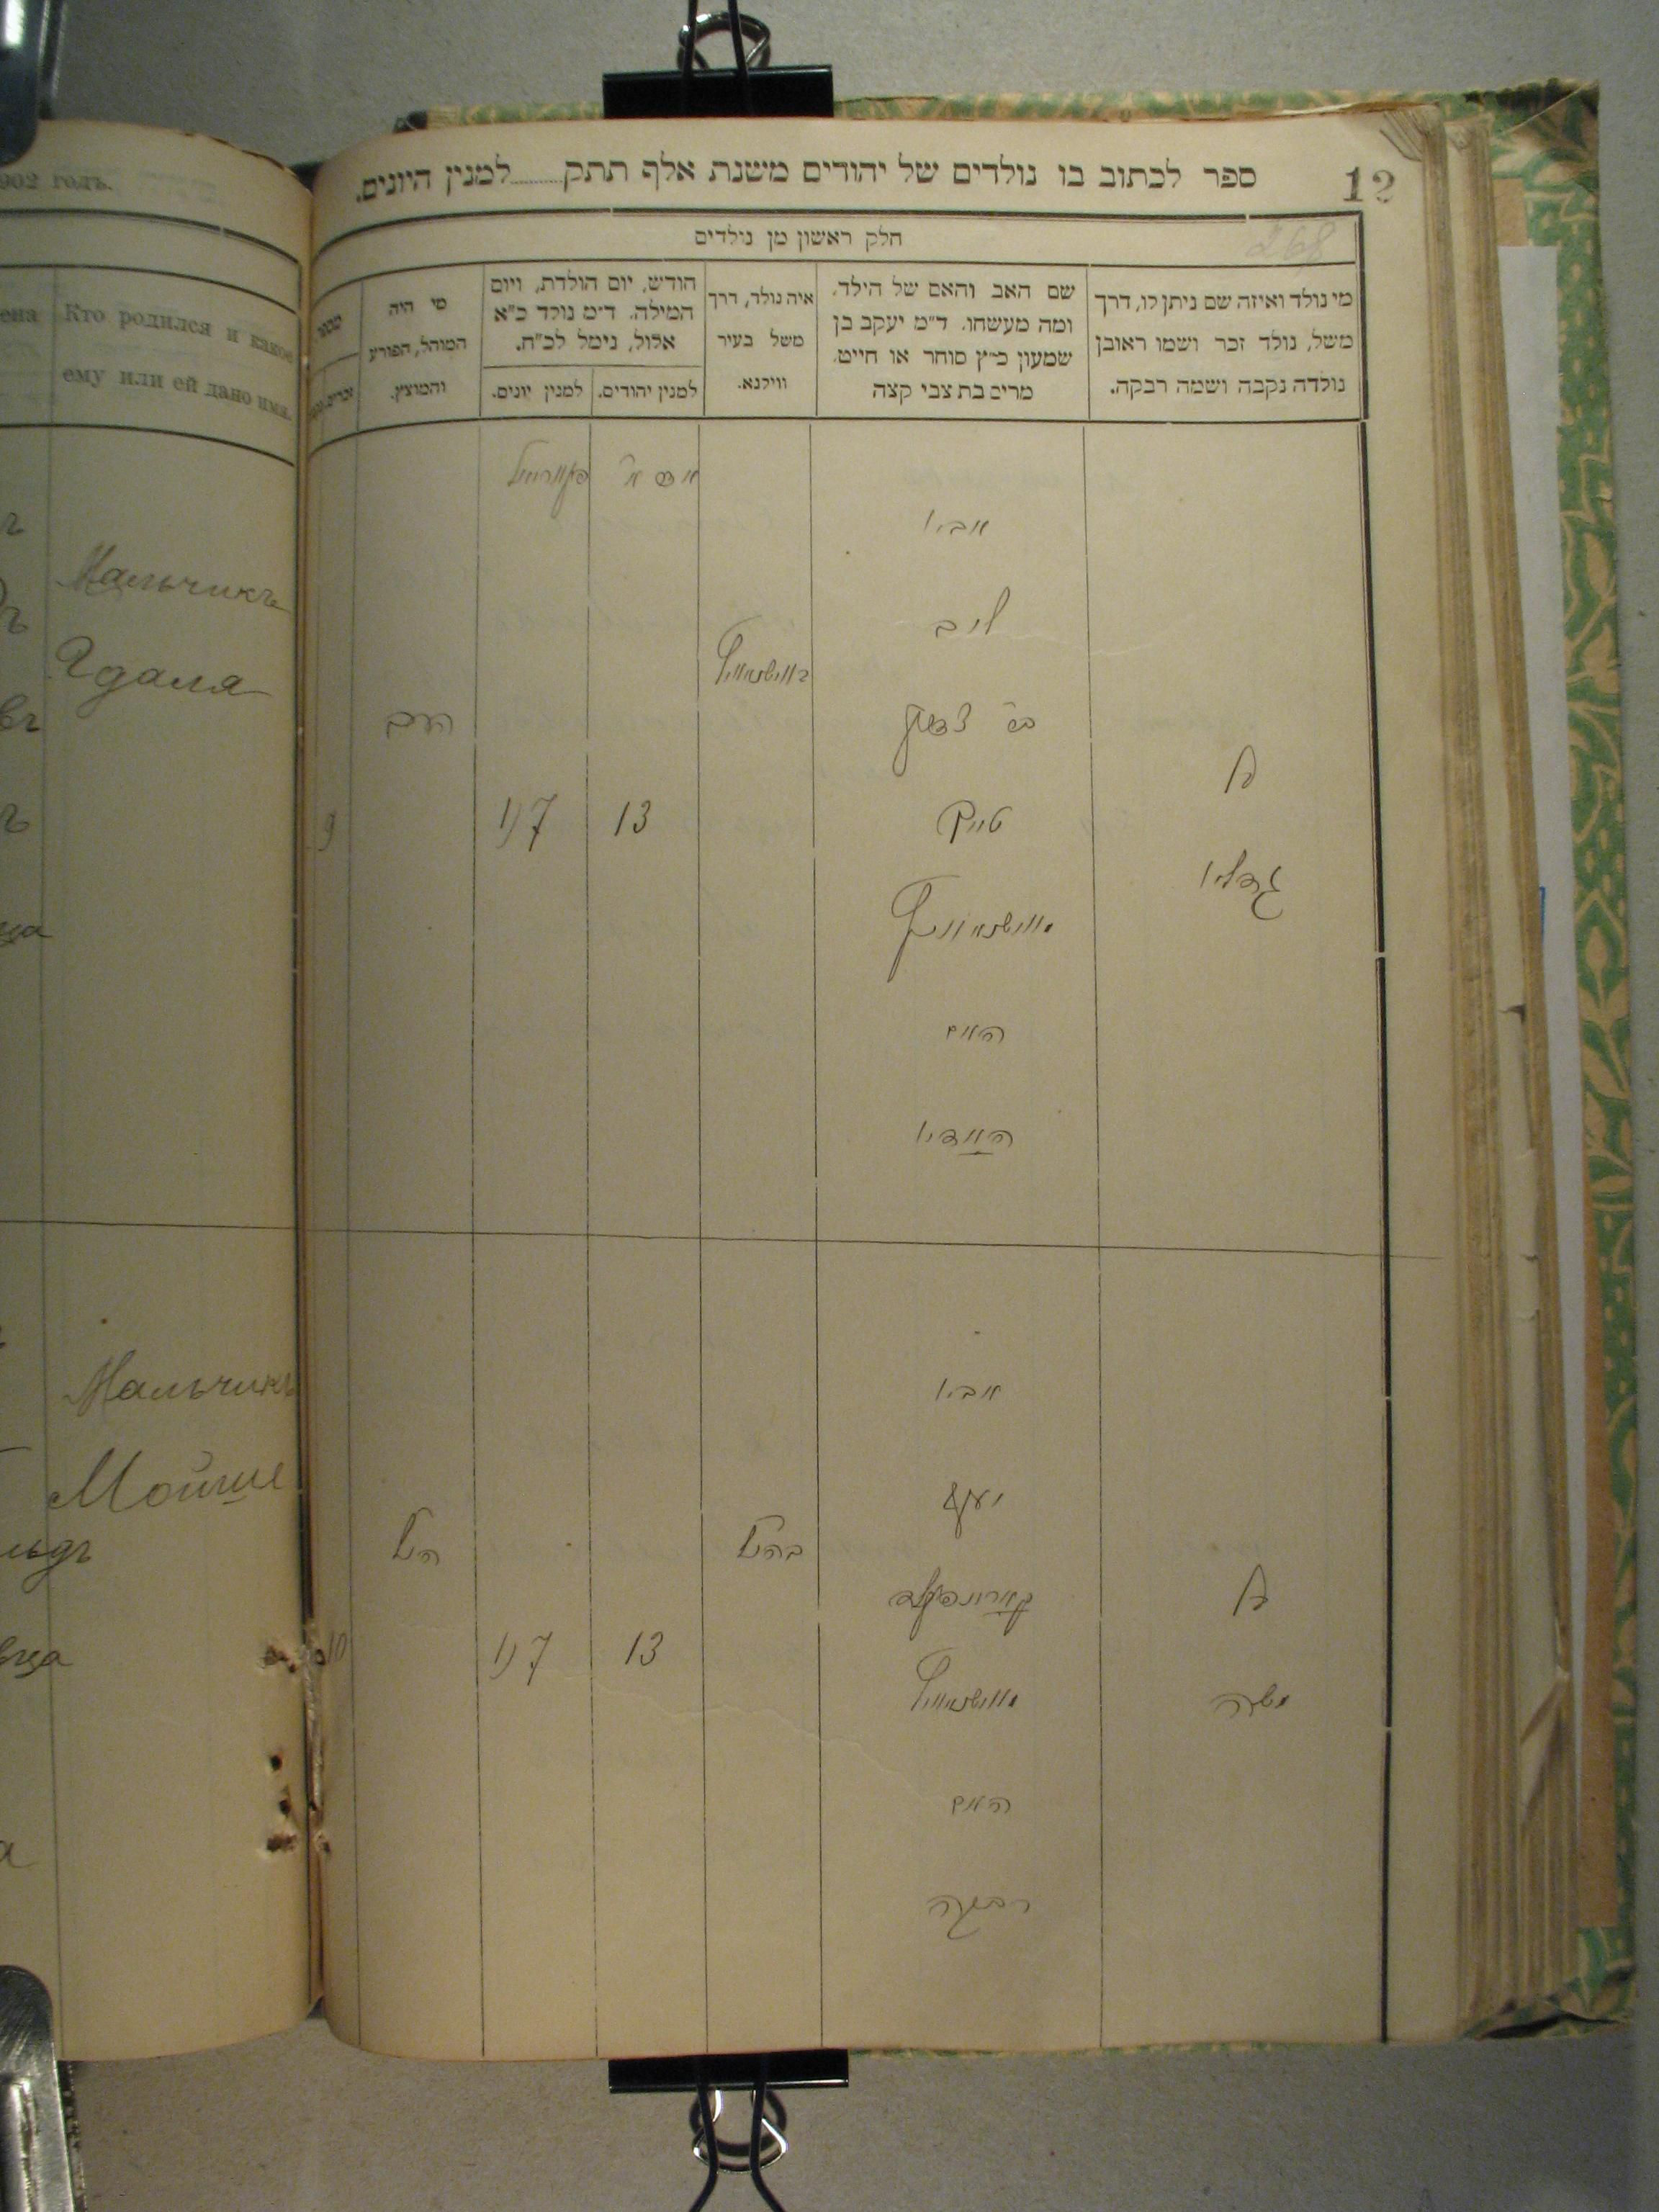 ספר לכתוב בו נולדים של יהודים משנת אלף תתק למנין היונים.
12
268
חלק ראשון מן נולדים
מי נולד ואיזה שם ניתן לו, דרך
משל, נולד זכר ושמו ראובן
נולדה נקבה ושמה רבקה.
שם האב והאם של הילד,
ומה מעשהו. ד״מ יעקב בן
שמעון כ״ץ סוחר או חייט.
מרים בת צבי קצה
איה נולד, דרך
משל בעיר
ווילנא.
חודש, יום הולדת, ויום
המילה. ד״מ נולד כ״א
אלול, נימל לכ״ח.
למנין יהודים.
למנין יונים.
מי היה
המוהל, הפורע
והמוצץ.
אביו
ליב
טייץ
האם
ז
גדליו
הרב
13
1) 7
9
אביו
יעקב
האם
רבקה
ז
משה
בהנ״ל
הנ״ל
13
1) 7
10
902 годъ.
Кто родился и какое
ему или ей дано имя.
Мальчикъ
Гдаля
Мальчикъ
Мойше